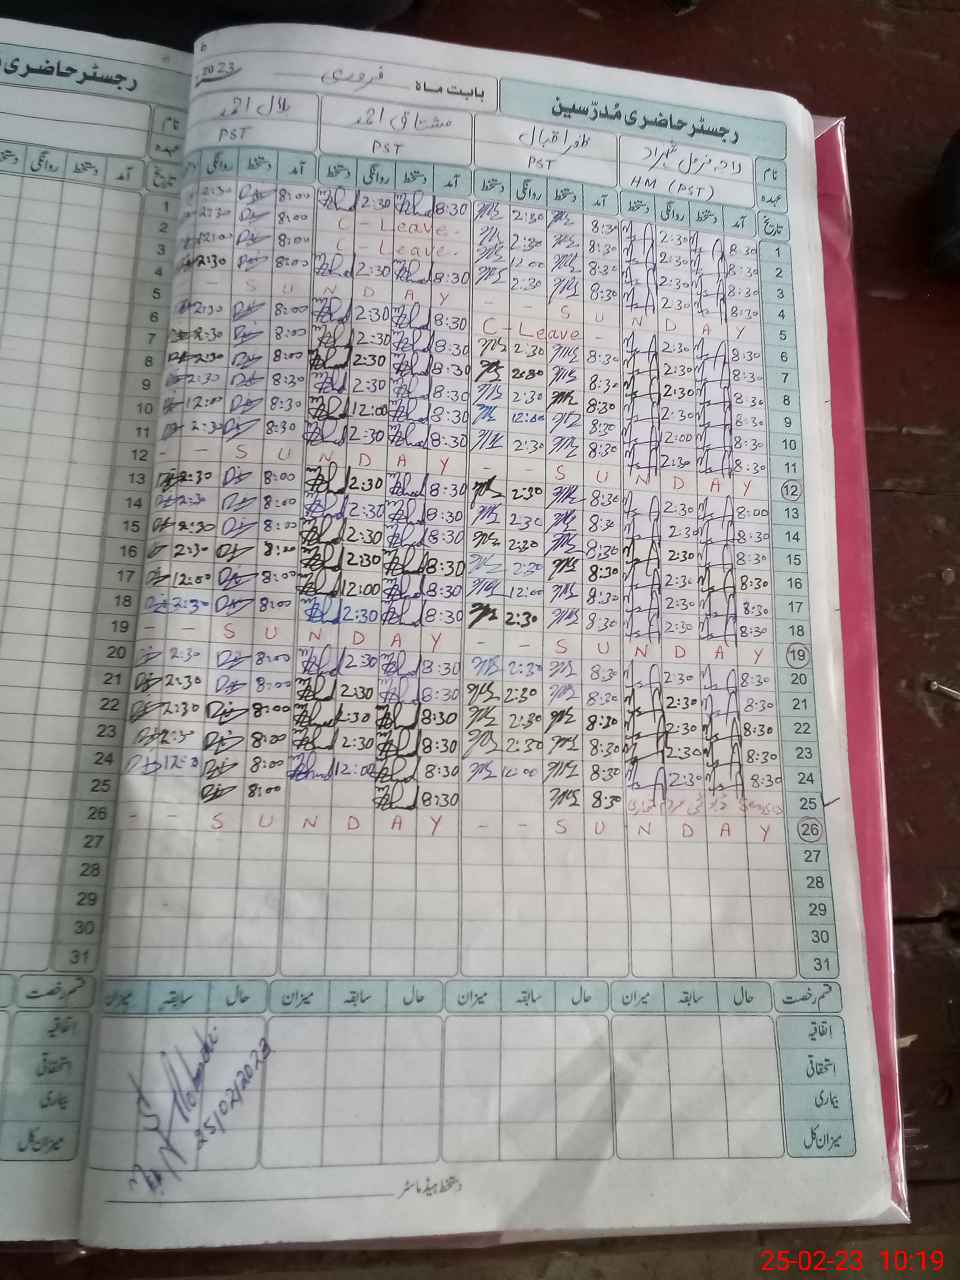 رجسٹر حاضری مُدرّسین
بابت ماہ فروری 2023
رجسٹر حاضری
نام ظفر اقبال مشتاق احمد بلال احمد
عہدہ HM (PST) PST PST PST
تاریخ آمد دستخط روانگی دستخط آمد دستخط روانگی دستخط آمد دستخط روانگی دستخط آمد دستخط روانگی
1 8:30 2:30 8:30 2:30 8:30 2:30 8:00 2:30
2 8:30 2:30 8:30 2:30 C - Leave - 8:00 2:30
3 8:30 2:30 8:30 12:00 C - Leave - 8:00 12:00
4 8:30 2:30 8:30 2:30 8:30 2:30 8:00 2:30
5 S U N D A Y - - S U N D A Y - -
6 8:30 2:30 C - Leave - 8:30 2:30 8:00 2:30
7 8:30 2:30 8:30 2:30 8:30 2:30 8:00 2:30
8 8:30 2:30 8:30 2:30 8:30 2:30 8:00 2:30
9 8:30 2:30 8:30 2:30 8:30 2:30 8:30 2:30
10 8:30 12:00 8:30 12:00 8:30 12:00 8:30 12:00
11 8:30 2:30 8:30 2:30 8:30 2:30 8:30 2:30
12 S U N D A Y - - S U N D A Y - -
13 8:00 2:30 8:30 2:30 8:30 2:30 8:00 2:30
14 8:30 2:30 8:30 2:30 8:30 2:30 8:00 2:30
15 8:30 2:30 8:30 2:30 8:30 2:30 8:00 2:30
16 8:30 2:30 8:30 2:30 8:30 2:30 8:00 2:30
17 8:30 2:30 8:30 12:00 8:30 12:00 8:00 12:00
18 8:30 2:30 8:30 2:30 8:30 2:30 8:00 2:30
19 S U N D A Y - - S U N D A Y - -
20 8:30 2:30 8:30 2:30 8:30 2:30 8:00 2:30
21 8:30 2:30 8:30 2:30 8:30 2:30 8:00 2:30
22 8:30 2:30 8:30 2:30 8:30 2:30 8:00 2:30
23 8:30 2:30 8:30 2:30 8:30 2:30 8:00 2:30
24 8:30 2:30 8:30 12:00 8:30 12:00 8:00 12:00
25 8:30 8:30 8:00
26 S U N D A Y - - S U N D A Y - -
27
28
29
30
31
قسم رخصت حال سابقہ میزان حال سابقہ میزان حال سابقہ میزان حال سابقہ میزان
اتفاقیہ
استحقاقی
بیماری
میزان کل
25/02/2023
دستخط ہیڈ ماسٹر
25-02-23 10:19